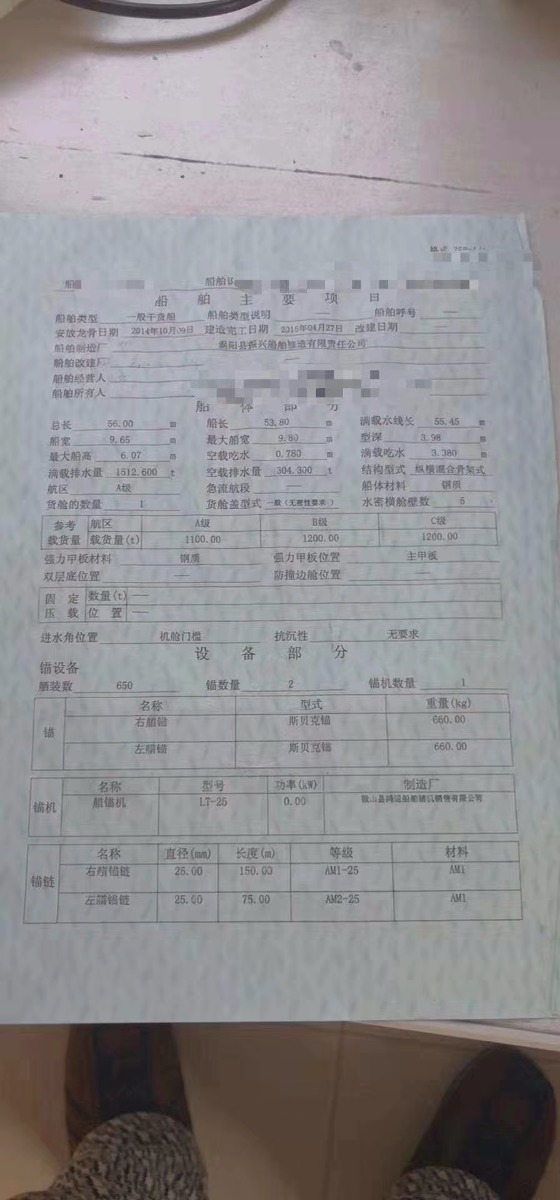 格式
船舶
船舶主要项目
船舶类型 一般干货船 船舶类型说明 — 船舶呼号 —
安放龙骨日期 2014年10月09日 建造完工日期 2015年04月27日 改建日期 —
船舶制造厂 县振兴船舶制造有限责任公司
船舶改建厂 —
船舶经营人
船舶所有人
船体部分
总长 56.00 m 船长 53.80 m 满载水线长 55.45 m
船宽 9.65 m 最大船宽 9.80 m 型深 3.98 m
最大船高 6.07 m 空载吃水 0.780 m 满载吃水 3.380 m
满载排水量 1512.600 t 空载排水量 304.300 t 结构型式 纵横混合骨架式
航区 A级 急流航段 — 船体材料 钢质
货舱的数量 1 货舱盖型式 一般(无密性要求) 水密横舱壁数 5
参考载货量 航区 A级 B级 C级
载货量(t) 1100.00 1200.00 1200.00
强力甲板材料 钢质 强力甲板位置 主甲板
双层底位置 — 防撞边舱位置 —
固定压载 数量(t) —
位置 —
进水角位置 机舱门槛 抗沉性 无要求
设备部分
锚设备
舾装数 650 锚数量 2 锚机数量 1
锚 名称 型式 重量(kg)
右艏锚 斯贝克锚 660.00
左艏锚 斯贝克锚 660.00
锚机 名称 型号 功率(kW) 制造厂
艏锚机 LT-25 0.00 微山县鸿运船舶 销售有限公司
锚链 名称 直径(mm) 长度(m) 等级 材料
右艏锚链 25.00 150.00 AM1-25 AM1
左艏锚链 25.00 75.00 AM2-25 AM1